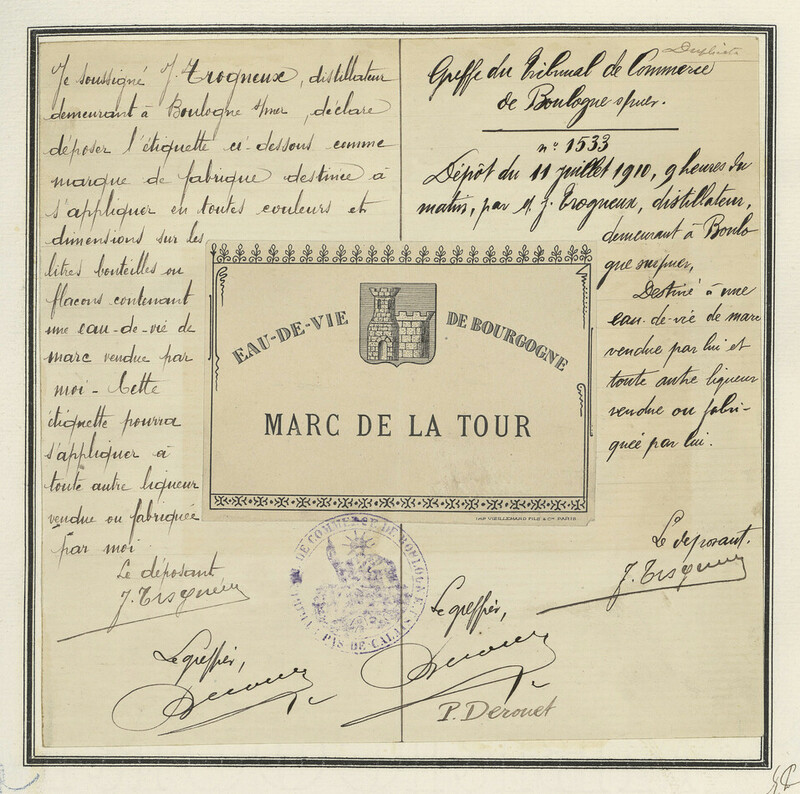 Je soussigné J. Trogneux, distillateur
demeurant à Boulogne s/mer, déclare
déposer l'étiquette ci-dessous comme
marque de fabrique destinée à
s'appliquer en toutes couleurs et
dimensions sur les
litres bouteilles ou
flacons contenant
une eau-de-vie de
marc vendue par
moi - Cette
étiquette pourra
s'appliquer à
toute autre liqueur
vendue ou fabriquée
par moi
Le déposant
J. Trogneux
Le greffier,
Duplicata
Greffe du Tribunal de Commerce
de Boulogne-s/mer.
n° 1533
Dépôt du 11 juillet 1910, 9 heures du
matin, par M. J. Trogneux, distillateur,
demeurant à Boulo-
gne sur mer,
Destiné à une
eau-de-vie de marc
vendue par lui et
toute autre liqueur
vendue ou fabri-
quée par lui.
Le déposant.
J. Trogneux
Le greffier,
P. Derouet
EAU-DE-VIE DE BOURGOGNE
MARC DE LA TOUR
IMP. VIEILLEMARD FILS & Cie PARIS
DE COMMERCE DE BOULOGNE
PAS-DE-CALAIS